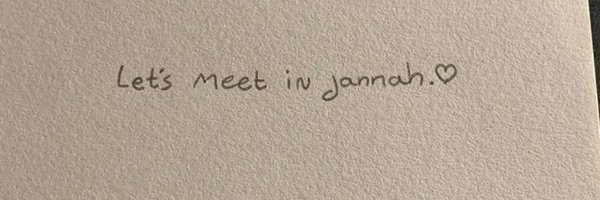 Let's meet in jannah.♡